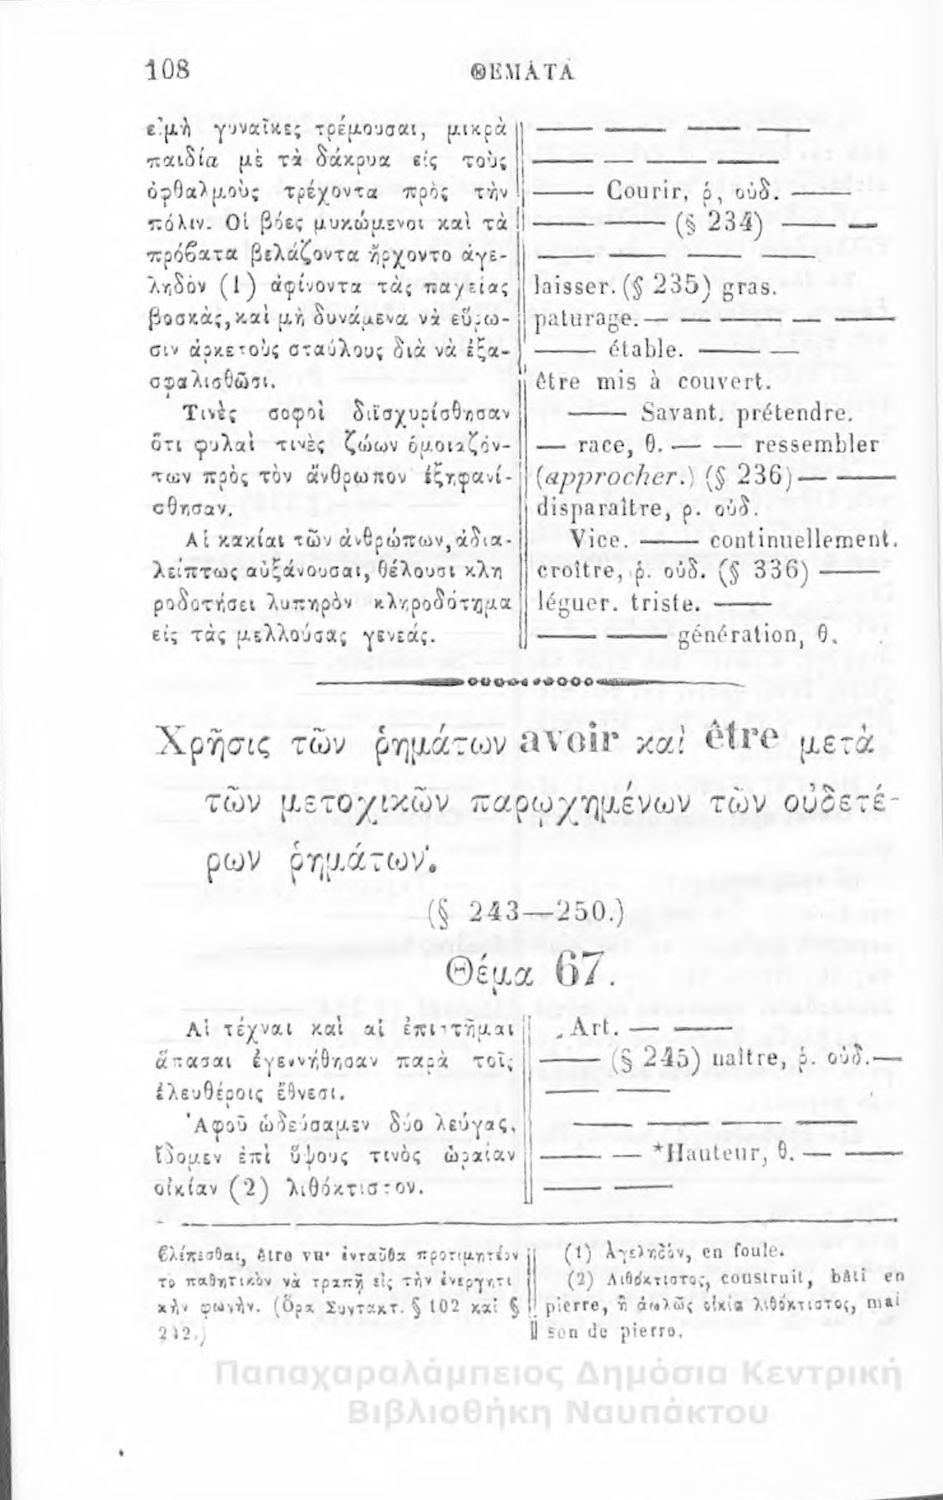 108 ΘΕΜΑΤΑ
εἰμὴ γυναῖκες τρέμουσαι, μικρὰ
παιδία μὲ τὰ δάκρυα εἰς τοὺς
ὀφθαλμοὺς τρέχοντα πρὸς τὴν
πόλιν. Οἱ βόες μυκώμενοι καὶ τὰ
πρόβατα βελάζοντα ἤρχοντο ἀγε-
ληδὸν (1) ἀφίνοντα τὰς παχείας
βοσκὰς, καὶ μὴ δυνάμενα νὰ εὕρω-
σιν ἀρκετοὺς σταύλους διὰ νὰ ἐξα-
σφαλισθῶσι.
Τινὲς σοφοὶ διϊσχυρίσθησαν
ὅτι φυλαὶ τινὲς ζώων ὁμοιαζόν-
των πρὸς τὸν ἄνθρωπον ἐξηφανί-
σθησαν.
Αἱ κακίαι τῶν ἀνθρώπων, ἀδια-
λείπτως αὐξάνουσαι, θέλουσι κλη
ροδοτήσει λυπηρὸν κληροδότημα
εἰς τὰς μελλούσας γενεάς.
—— —— —— ——
—— — — ——
—— Courir, ῥ, οὐδ. ——
—— —— (§ 234) —— —
—— —— —— ——
laisser. (§ 235) gras.
paturage. — —— —— — ——
—— étable. —— —
être mis à couvert.
—— Savant. prétendre.
— race, θ. — — ressembler
(approcher.) (§ 236) — ——
disparaître, ρ. οὐδ.
Vice. —— continuellement.
croître, ῥ. οὐδ. (§ 336) ——
léguer. triste. ——
—— —— génération, θ.
Χρῆσις τῶν ῥημάτων avoir καὶ être μετὰ
τῶν μετοχικῶν παρῳχημένων τῶν οὐδετέ-
ρων ῥημάτων.
(§ 243—250.)
Θέμα 67.
Αἱ τέχναι καὶ αἱ ἐπιστῆμαι
ἅπασαι ἐγεννήθησαν παρὰ τοῖς
ἐλευθέροις ἔθνεσι.
Ἀφοῦ ὡδεύσαμεν δύο λεύγας,
ἴδομεν ἐπὶ ὕψους τινὸς ὡραίαν
οἰκίαν (2) λιθόκτιστον.
Art. — ——
—— (§ 245) naître, ῥ. οὐδ. —
—— ——
—— —— —— ——
—— — *Hauteur, θ. — ——
—— ——
βλέπεσθαι, être vu· ἐνταῦθα προτιμητέον
τὸ παθητικὸν νὰ τραπῇ εἰς τὴν ἐνεργητι
κὴν φωνήν. (Ὅρα Συντακτ. § 102 καὶ §
242.)
(1) Ἀγεληδόν, en foule.
(2) Λιθόκτιστος, construit, bâti en
pierre, ἢ ἁπλῶς οἰκία λιθόκτιστος, mai
son de pierre.
Παπαχαραλάμπειος Δημόσια Κεντρική
Βιβλιοθήκη Ναυπάκτου